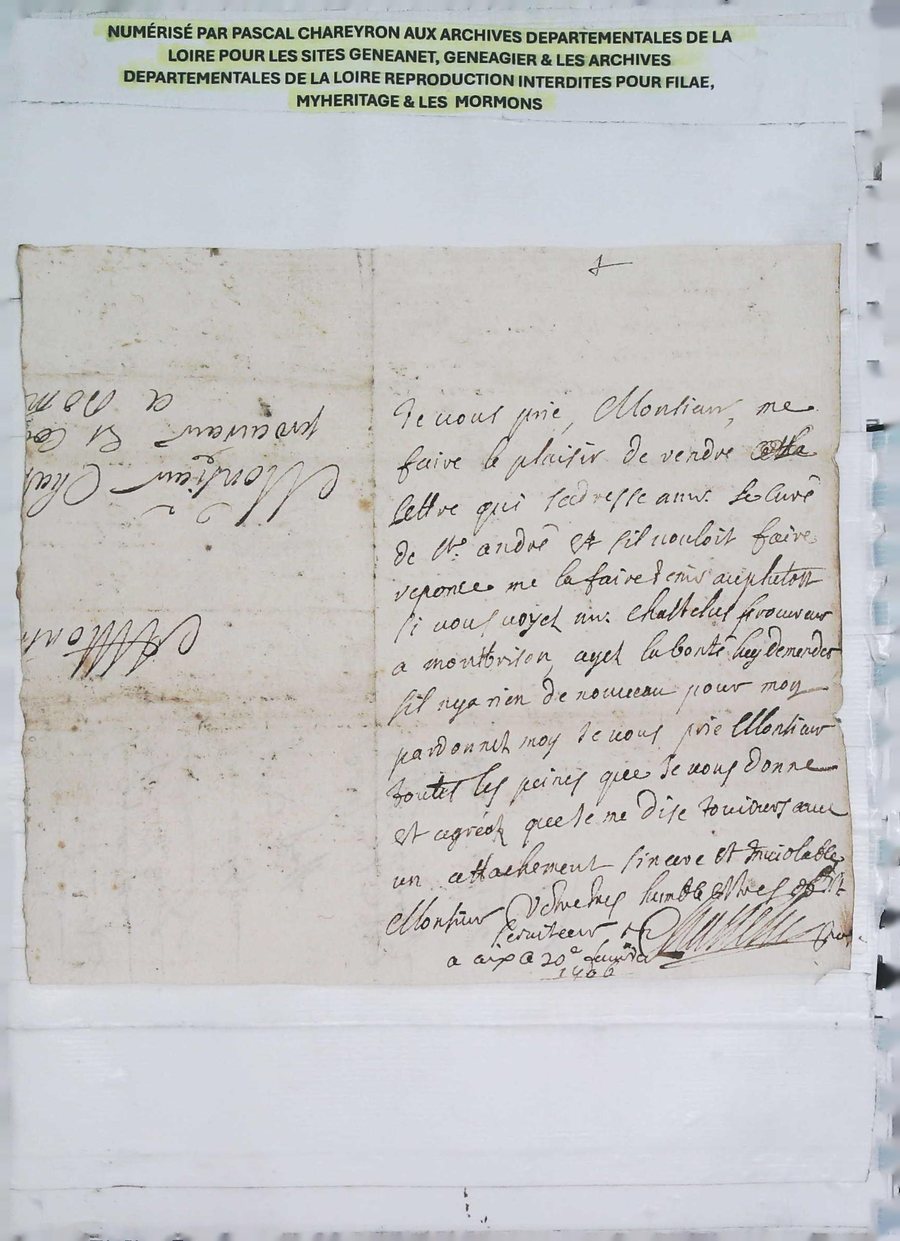 NUMÉRISÉ PAR PASCAL CHAREYRON AUX ARCHIVES DEPARTEMENTALES DE LA
LOIRE POUR LES SITES GENEANET, GENEAGIER & LES ARCHIVES
DEPARTEMENTALES DE LA LOIRE REPRODUCTION INTERDITES POUR FILAE,
MYHERITAGE & LES MORMONS
Je vous prie, Monsieur, me
faire le plaisir de rendre cette
lettre qui sadresse a mr. le curé
de st. andré et sil vouloit faire
reponce me la faire tenir au plutost
si vous voyez mr. Chastelus procureur
a montbrison, ayez la bonté luy demender
sil nya rien de nouveau pour moy
pardonnez moy Je vous prie Monsieur
toutes les peines que Je vous donne
et agréez que Je me dise toujours avec
un attachement sincere et inviolable
Monsieur Vostre tres humble et tres obst
serviteur
a aix ce 20e
Monsieur
Monsieur
procureur et
a
A Mont